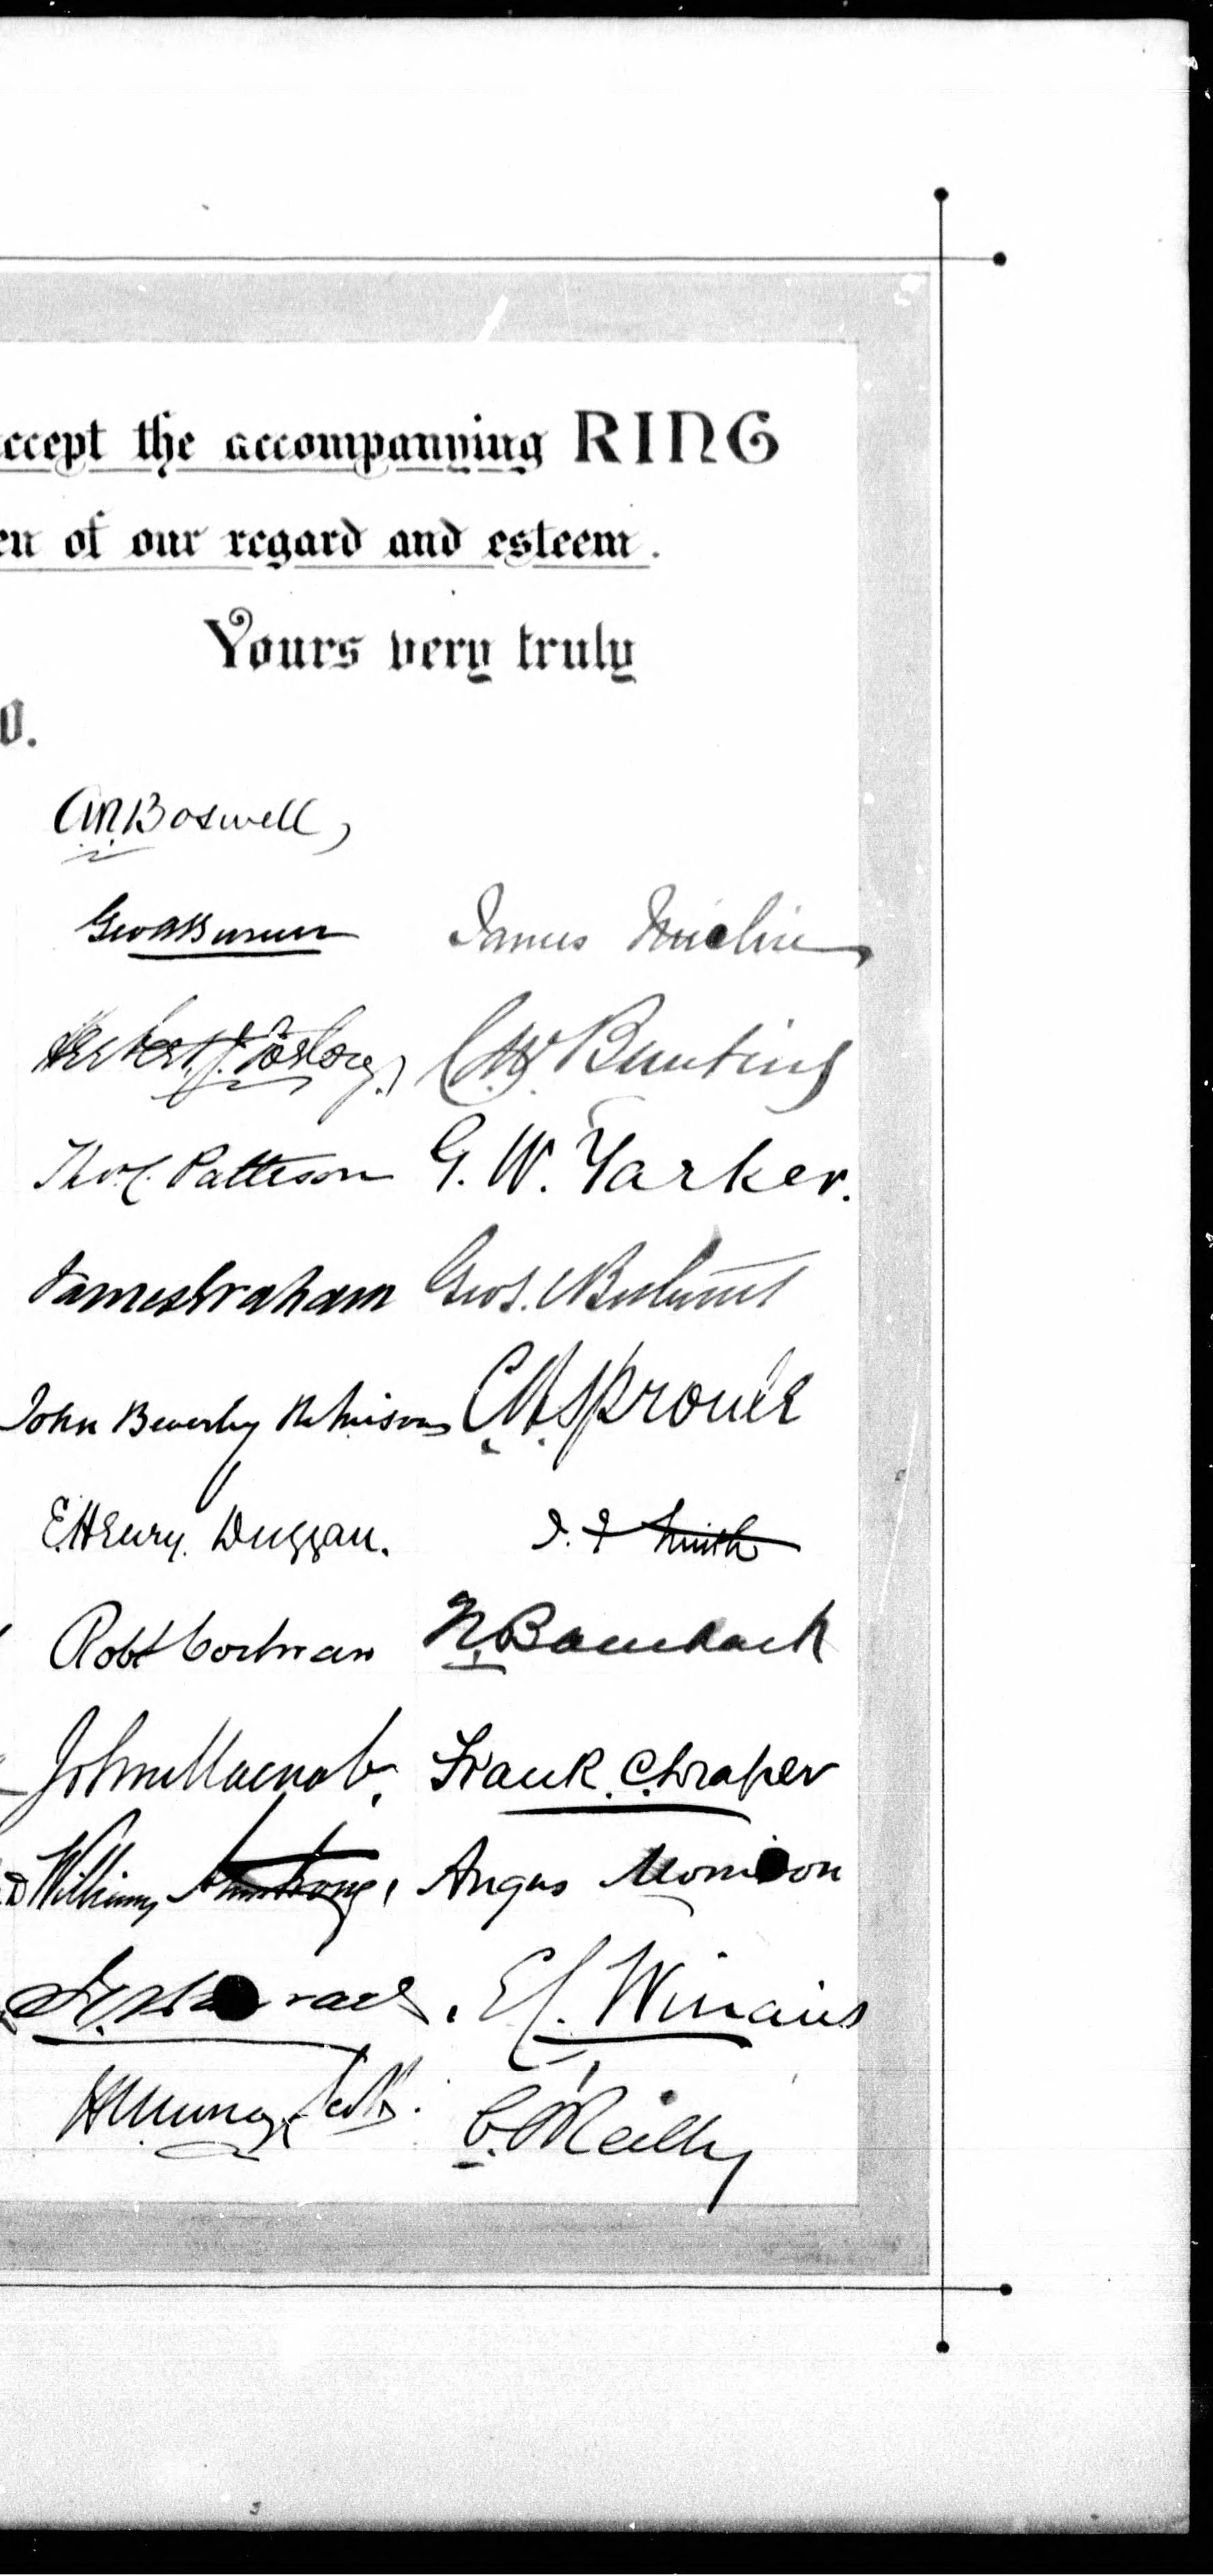 ccept the accompanying RING
en of our regard and esteem.
Yours very truly
0.
A.R. Boswell,
Geo
James
Herbert
C.W. Bunting
Thos. C. Patteson
G. W. Yarker.
James Graham
Geo S.
John Beverley Robinson
C.A. Sproule
E. Henry Duggan.
Smith
Robt Cochran
John Macnab.
Frank C. Draper
William Armstrong,
Angus Morrison
E Winans
C. O'Reilly